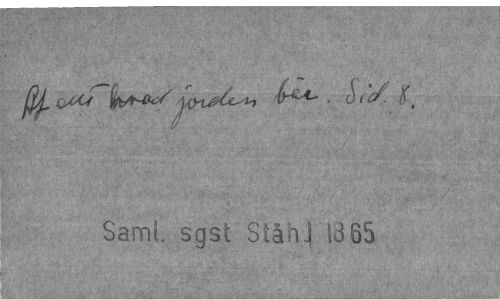 Af allt hvad jorden bär. Sid. 8.
Saml. sgst Ståhl 1865